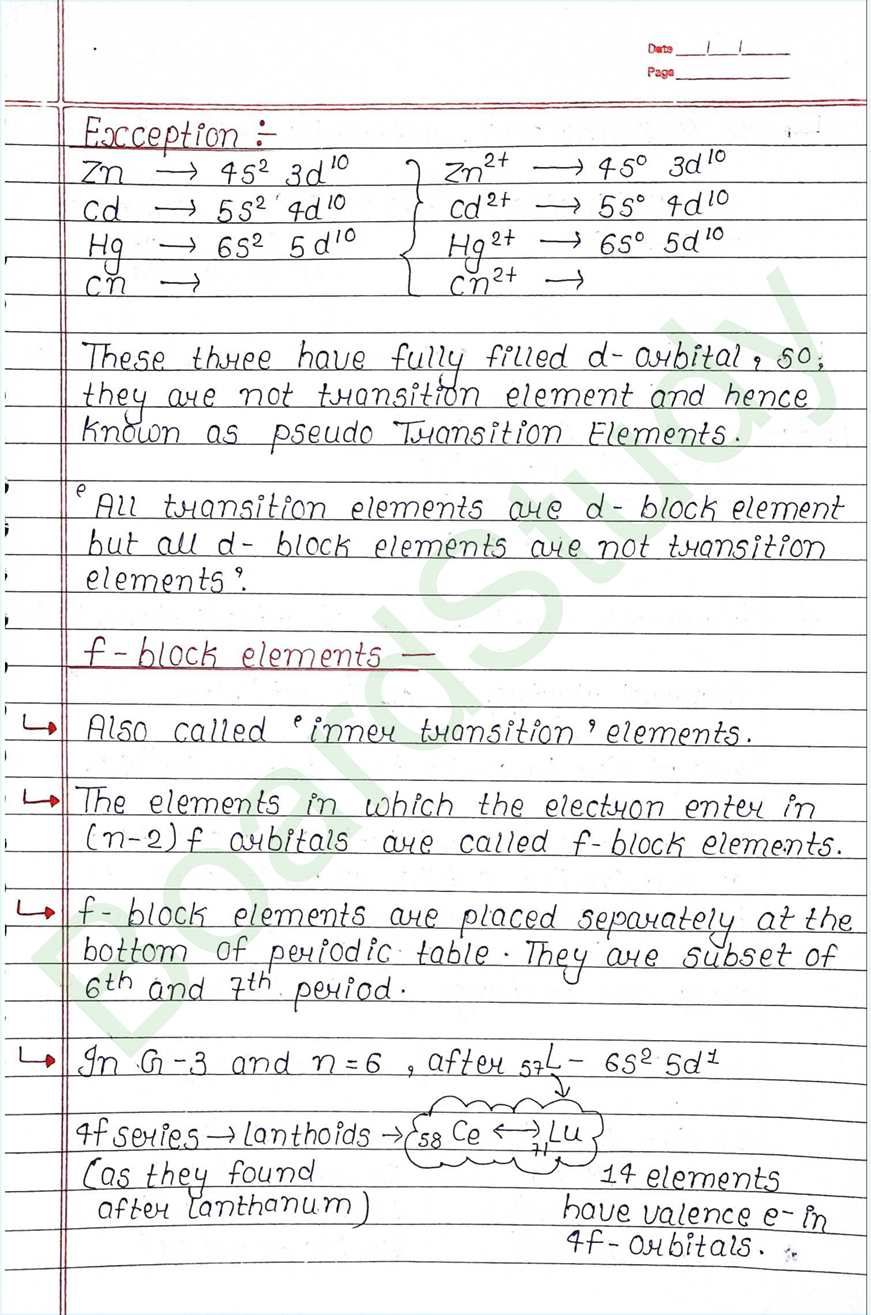 Date / /
Page
Exception :-
Zn → 4s² 3d¹⁰ Zn²⁺ → 4s⁰ 3d¹⁰
Cd → 5s² 4d¹⁰ Cd²⁺ → 5s⁰ 4d¹⁰
Hg → 6s² 5d¹⁰ Hg²⁺ → 6s⁰ 5d¹⁰
Cn → Cn²⁺ →
These three have fully filled d-orbital, so,
they are not transition element and hence
known as pseudo Transition Elements.
‘All transition elements are d-block element
but all d-block elements are not transition
elements’.
f-block elements —
↳ Also called ‘inner transition’ elements.
↳ The elements in which the electron enter in
(n-2)f orbitals are called f-block elements.
↳ f-block elements are placed separately at the
bottom of periodic table. They are subset of
6th and 7th period.
↳ In G-3 and n=6, after ₅₇L - 6s² 5d¹
4f series → lanthoids → ₅₈Ce ↔ ₇₁Lu
(as they found 14 elements
after lanthanum) have valence e- in
4f-orbitals.
BoardStudy